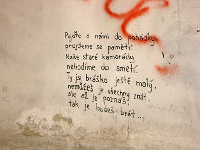 Pojďte s námi do pohádky,
projdeme se pamětí.
Naše staré kamarády
nehodíme do smetí.
Ty jsi, bráško ještě malý,
nemůžeš je všechny znát,
ale až je poznáš,
tak je budeš brát...